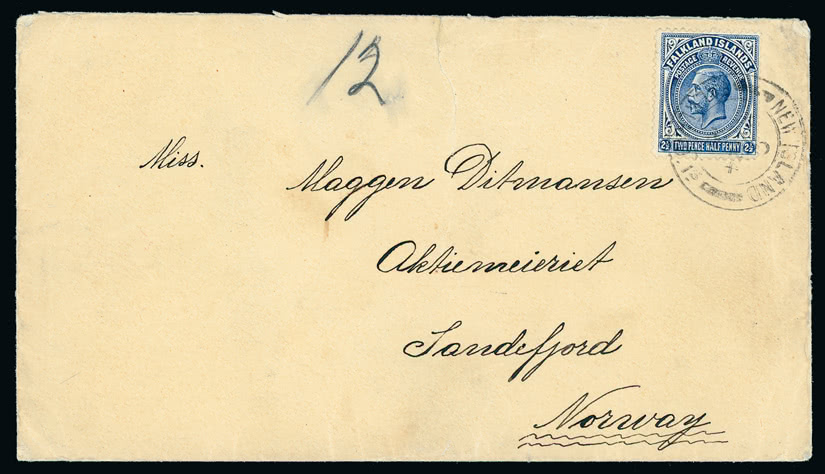 12
FALKLAND ISLANDS
POSTAGE REVENUE
2½ TWO PENCE HALF PENNY 2½
NEW ISLAND
Miss.
Maggen Ditmansen
Aktiemeieriet
Sandefjord
Norway